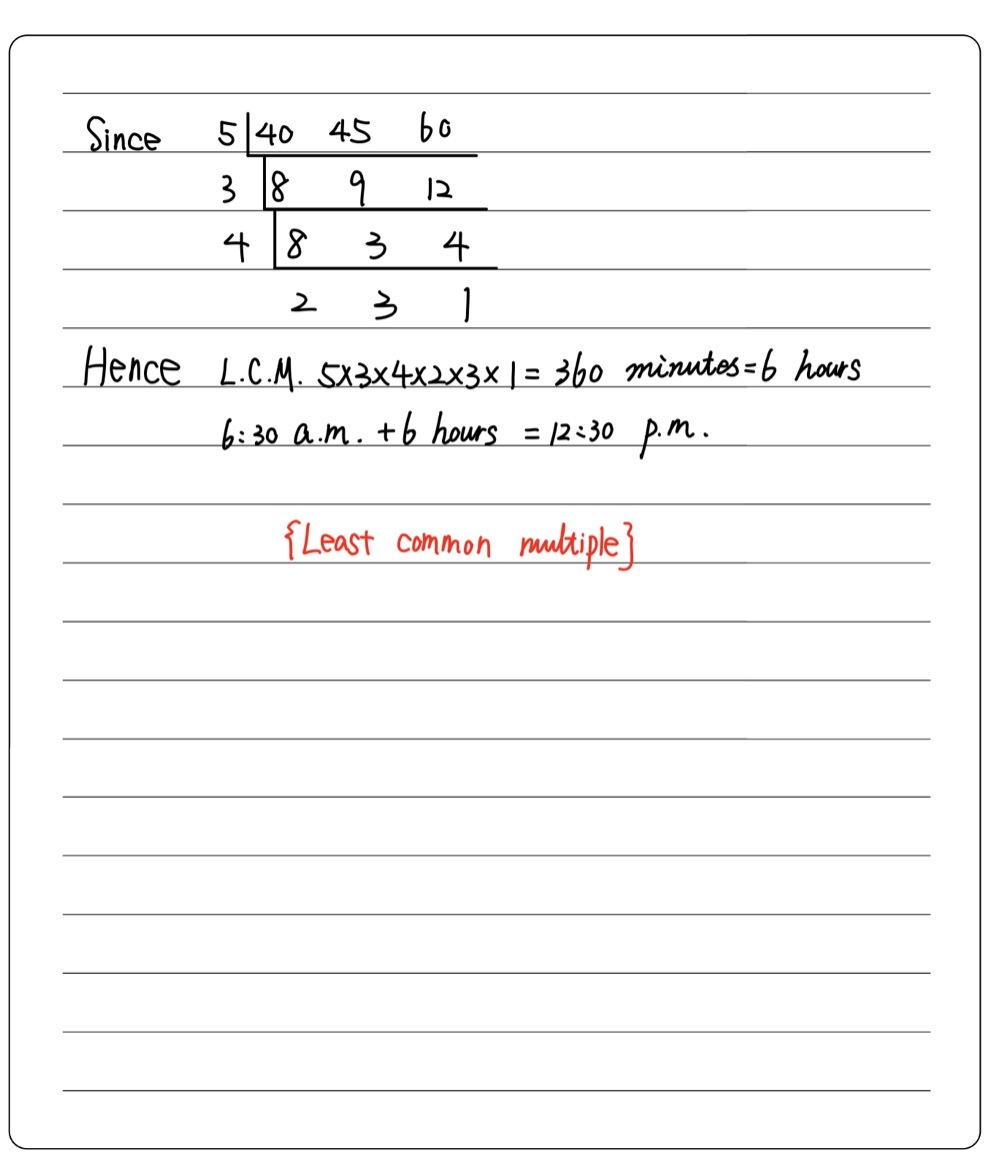 Since 5 40 45 60
3 8 9 12
4 8 3 4
2 3 1
Hence L.C.M. 5×3×4×2×3×1 = 360 minutes = 6 hours
6:30 a.m. + 6 hours = 12:30 p.m.
{Least common multiple}